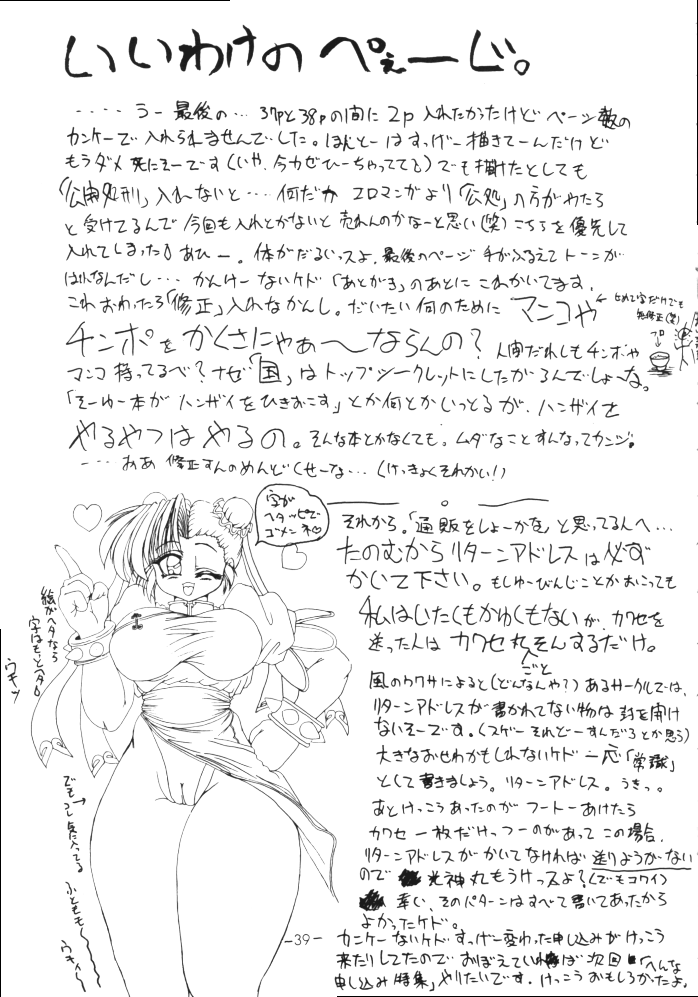 いいわけの ぺぇーじ。
‥‥ うー 最後の… 37pと38pの間に 2p 入れたかったけど ページ数の
カンケーで 入れられませんでした。ほんとーはすっげー描きてーんだけど
もうダメ 死にそーです(いや、今カゼひーちゃってて)でも描けたとしても
「公開処刑」入れないと… 何だか エロマンガより「公処」の方がやたら
と受けてるんで 今回も入れとかないと 売れんのかなーと思い(笑)こちらを優先して
入れてしまった あひー。体がだるいっスよ、最後のページ 手がふるえてトーンが
はれなんだし… かんけーないケド「あとがき」のあとに これかいてます。
これ おわったら「修正」入れなかんし。だいたい何のために マンコや
←せめて字だけでも
無修正(笑)
チンポを かくさにゃぁ〜ならんの? 人間だれしもチンポや
マンコ 持ってるべ? ナゼ「国」はトップシークレットにしたがるんでしょーな。
「そーゆー本が ハンザイをひきおこす」とか何とかいっとるが、ハンザイを
やるやつは やるの。そんな本とかなくても。ムダなことすんなってカンジ。
‥‥ ああ 修正すんのめんどくせーな…(けっきょくそれかい!)
字が
ヘタッピで
ゴメンネ♡
絵がヘタなら
字はもっとヘタ
ウキッ
でもコレ気に入ってる
ふともも〜
ウキィ〜
それから。「通販をしよーかな」と思ってる人へ…
たのむから リターンアドレスは必ず
かいて下さい。もしゆーびんじことかおこっても
私はいたくもかゆくもないが、カワセを
送った人は カワセ丸ごとそんするだけ。
風のウワサによると(どんなんや?)あるサークルでは、
リターンアドレスが 書かれてない物は 封を開け
ないそーです。(スゲー それどーすんだろ とか思う)
大きなおせわかもしれないケド 一応「常識」
として書きましょう。リターンアドレス。うきっ。
あとけっこうあったのが フートーあけたら
カワセ 一枚だけっつーのがあって この場合、
リターンアドレスがかいてなければ 送りようがない
ので 光神丸もうけっスよ?(でもコワイ)
幸い、そのパターンはすべて書いてあったから
よかったケド。
カンケーないケド すっげー変わった申し込みがけっこう
来たりしてたので おぼえていれば 次回「へんな
申し込み特集」やりたいです。けっこうおもしろかったよ。
-39-